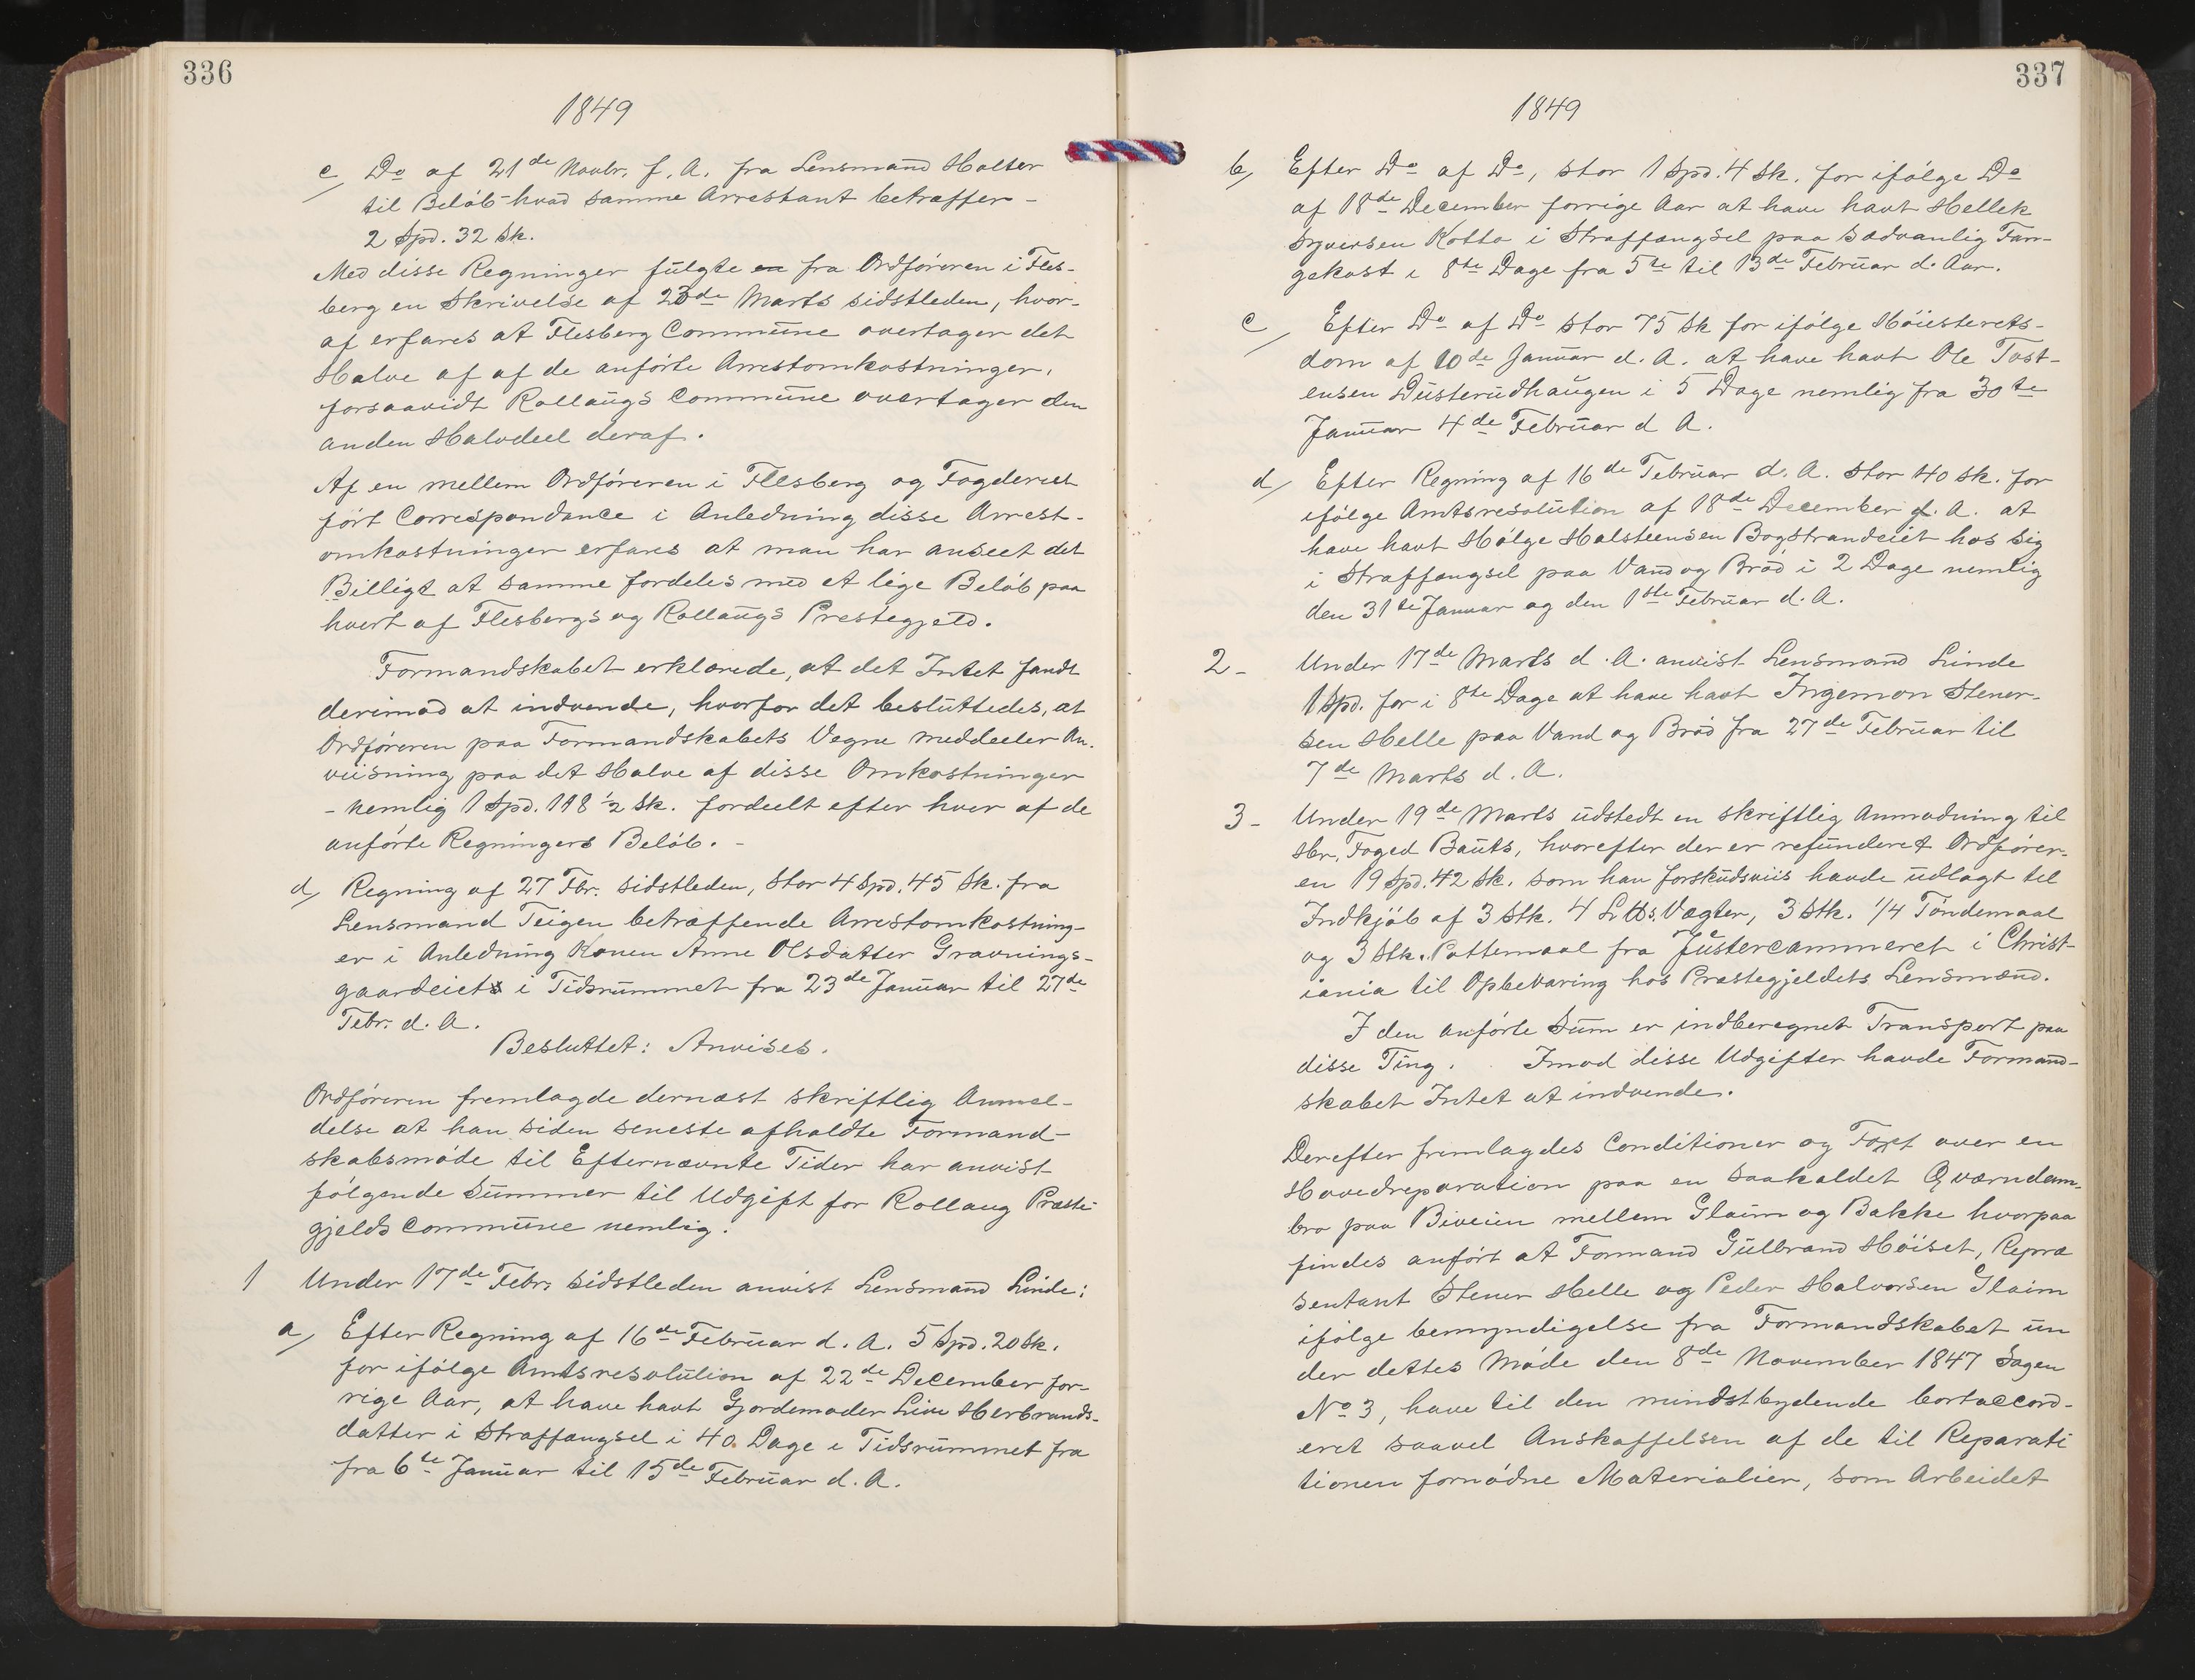 336
1849
c/ Do af 21de Novbr. f. A. fra Lensmand Halter
til Beløb hvad samme Arrestant betræffer -
2 Spd. 32 Sk.
Med disse Regninger fulgte en fra Ordføreren i Fles-
berg en Skrivelse af 23de Marts sidstleden, hvor-
af erfares at Flesberg Commune overtager det
Halve af af de anførte Arrestomkostninger,
forsaavidt Rollaugs Commune overtager den
anden Halvdeel deraf.
Af en mellem Ordføreren i Flesberg og Fogderiet
ført Correspondance i Anledning disse Arrest-
omkostninger erfares at man har anseet det
Billigt at samme fordeles med et lige Beløb paa
hvert af Flesbergs og Rollaugs Prestegjeld.
Formandskabet erklærede, at det Intet fandt
derimod at indvende, hvorfor det besluttedes, at
Ordføreren paa Formandskabets Vegne meddeeler An-
viisning paa det Halve af disse Omkostninger
- nemlig 1 Spd. 118 1/2 Sk. fordeelt efter hver af de
anførte Regningers Beløb. -
d/ Regning af 27 Fbr. sidstleden, stor 4 Spd. 45 Sk. fra
Lensmand Teigen betræffende Arrestomkostning-
er i Anledning Konen Anne Olsdatter Gravnings-
gaardeiets i Tidsrummet fra 23de Januar til 27de
Febr. d. A.
Besluttet: Anvises.
Ordføreren fremlagde dernæst skriftlig Anmel-
delse at han siden seneste afholdte Formand-
skabsmøde til Efternævnte Tider har anvist
følgende Summer til Udgift for Rollaug Præste-
gjelds Commune nemlig.
1 Under 17de Febr. sidstleden anvist Lensmand Linde:
a/ Efter Regning af 16de Februar d. A. 5 Spd. 20 Sk.
for ifølge Amtsresolution af 22de December for-
rige Aar, at have havt Gjordemoder Live Herbrands-
datter i Straffangsel i 40 Dage i Tidsrummet fra
fra 6te Januar til 15de Februar d. A.
337
1849
b/ Efter Do af Do, stor 1 Spd. 4 Sk. for ifølge Do
af 18de December forrige Aar at have havt Hellek
Syversen Kotto i Straffangsel paa sædvanlig Fan-
gekost i 8te Dage fra 5te til 13de Februar d. Aar.
c/ Efter Do af Do stor 75 Sk for ifølge Høiesterets-
dom af 10de Januar d. A. at have havt Ole Tost-
ensen Dusterudhaugen i 5 Dage nemlig fra 30te
Januar 4de Februar d A.
d/ Efter Regning af 16de Februar d. A. stor 40 Sk. for
ifølge Amtsresolution af 18de December f. A. at
have havt Hølge Halsteensen Bogstrandeiet hos sig
i Straffangsel paa Vand og Brød i 2 Dage nemlig
den 31te Januar og den 1ste Februar d. A.
2 - Under 17de Marts d. A. anvist Lensmand Linde
1 Spd. for i 8te Dage at have havt Ingemon Stener-
sen Helle paa Vand og Brød fra 27de Februar til
7de Marts d. A.
3 - Under 19de Marts udstedt en skriftlig Anmodning til
Hr. Foged Bauts, hvorefter der er refunderet Ordfører-
en 19 Spd. 42 Sk. som han forskudsviis havde udlagt til
Indkjøb af 3 Stk. 4 Vægter, 3 Stk. 1/4 Tøndemaal
og 3 Stk. Pottemaal fra Justercammeret i Christ-
iania til Opbevaring hos Præstegjeldets Lensmænd.
I den anførte Sum er indberegnet Transport paa
disse Ting. Imod disse Udgifter havde Formand-
skabet Intet at indvende.
Derefter fremlagdes Conditioner og over en
Hovedreparation paa en saakaldet Qværndam-
bro paa Biveien mellem Glaim og Bakke hvorpaa
findes anført at Formand Gulbrand Høiset, Repræ
sentant Stener Helle og Peder Halvorsen Glaim
ifølge bemyndigelse fra Formandskabet un
der dettes Møde den 8de November 1847 Sagen
No 3, have til den mindstbydende bortaccord-
eret saavel Anskaffelsen af de til Reparati
tionen fornødne Materialier, som Arbeidet